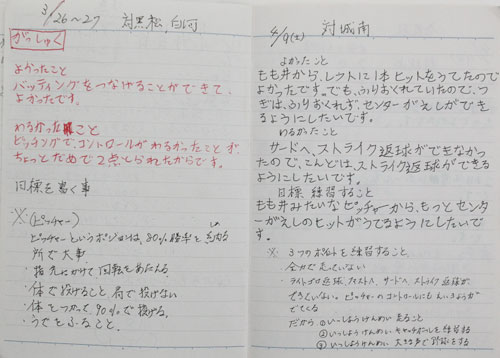 3/26〜27 対黒松、白河
がっしゅく
よかったこと
バッティングをつなげることができて、
よかったです。
わるかったこと
ピッチングで、コントロールがわるかったこと
ちょっとだめで2点とられたからです。
目標を書く事
※(ピッチャー)
ピッチャーというポジションは、80%勝率を占める
所で大事
・指先にかけて回転をあたえる
・体で投げること 肩で投げない
・体をつかって、90%で投げる。
・うでをふること。
4/9(土) 対城南
よかたこと
もも井から、レフトに1本ヒットをうてたので
よかたです。でも、ふりおくれていたので、つ
ぎは、ふりおくれず、センターがえしができ
るようにしたいです。
わるかたこと
サードへ、ストライク返球ができなかっ
たので、こんどは、ストライク返球ができる
ようにしたいです。
目標、練習すること
もも井みたいなピッチャーから、もっとセンタ
ーがえしのヒットがうてるようにしたいで
す。
※ 3つのポイントを練習すること、
全力で走っていない
ライトゴロ返球、ファイスト、サードへ、ストライク返球が
できていない。ピッチャーのコントロールにもえいきょうが
でてくる
だから ①いっしょうけんめい走ること
②いっしょうけんめい キャッチボールを練習する
③いっしょうけんめい 大きな声で野球をする